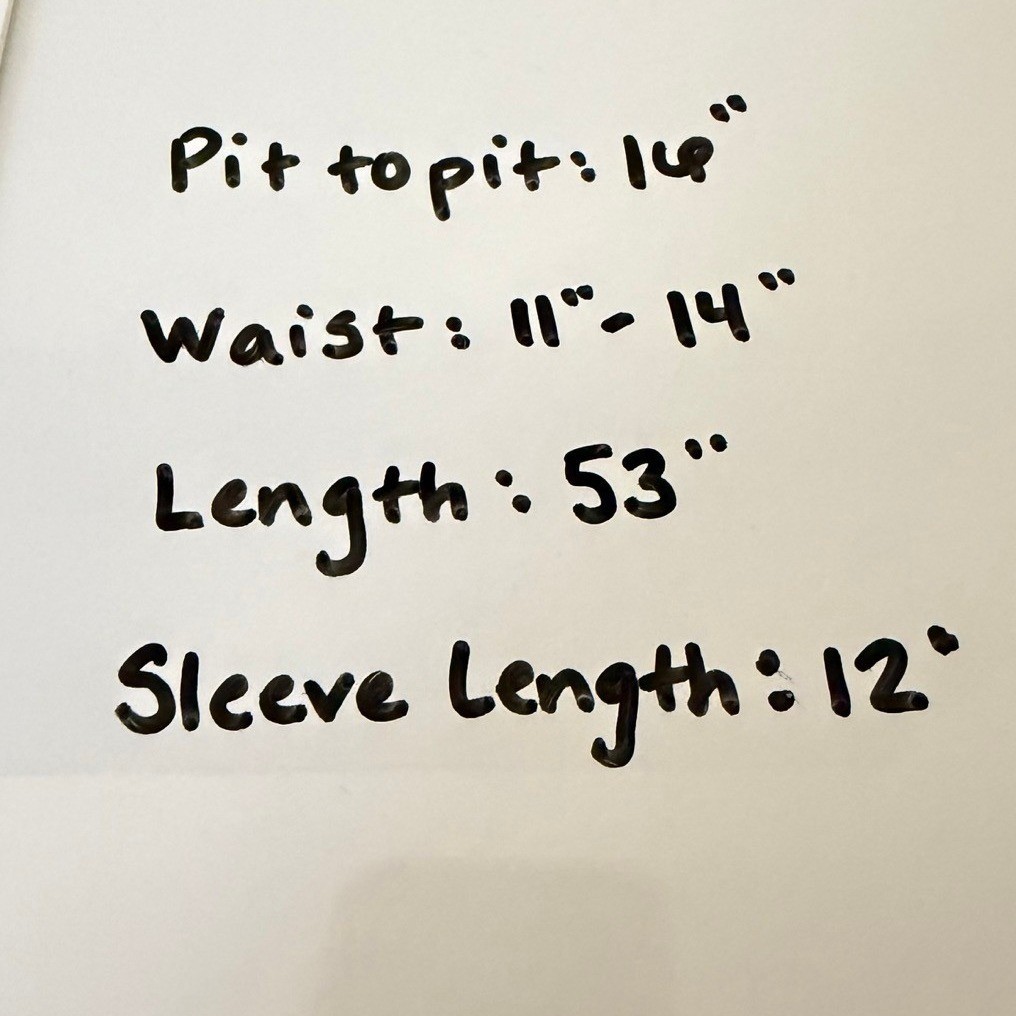 Pit to pit: 16"
Waist: 11"- 14"
Length: 53"
Sleeve Length: 12"